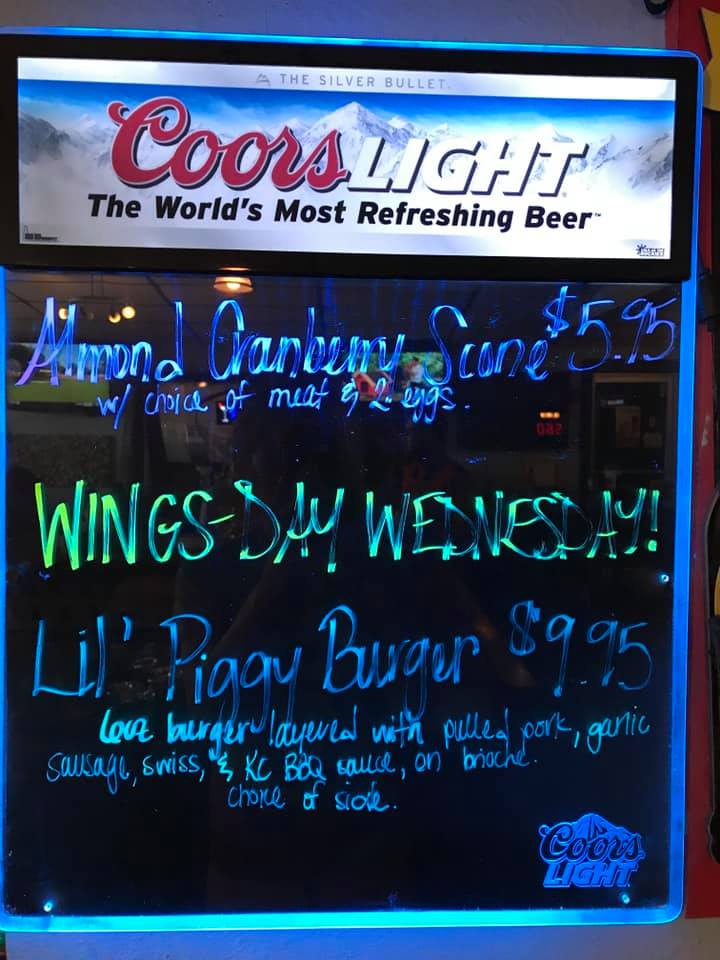 THE SILVER BULLET.
Coors LIGHT
The World's Most Refreshing Beer™
Almond Cranberry Scone $5.95
w/ choice of meat & 2 eggs.
WINGS-DAY WEDNESDAY!
Lil' Piggy Burger $9.95
6oz burger layered with pulled pork, garlic
sausage, swiss, & KC BBQ sauce, on brioche.
choice of side.
Coors
LIGHT